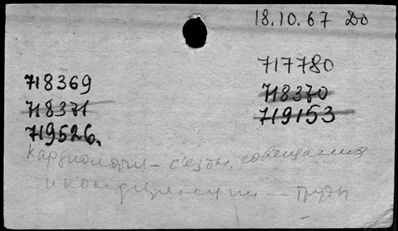 18.10.67 До
717780
718369
718370
718371
719153
719526.
Кардиология – съезды, совещания
и конференции – труды